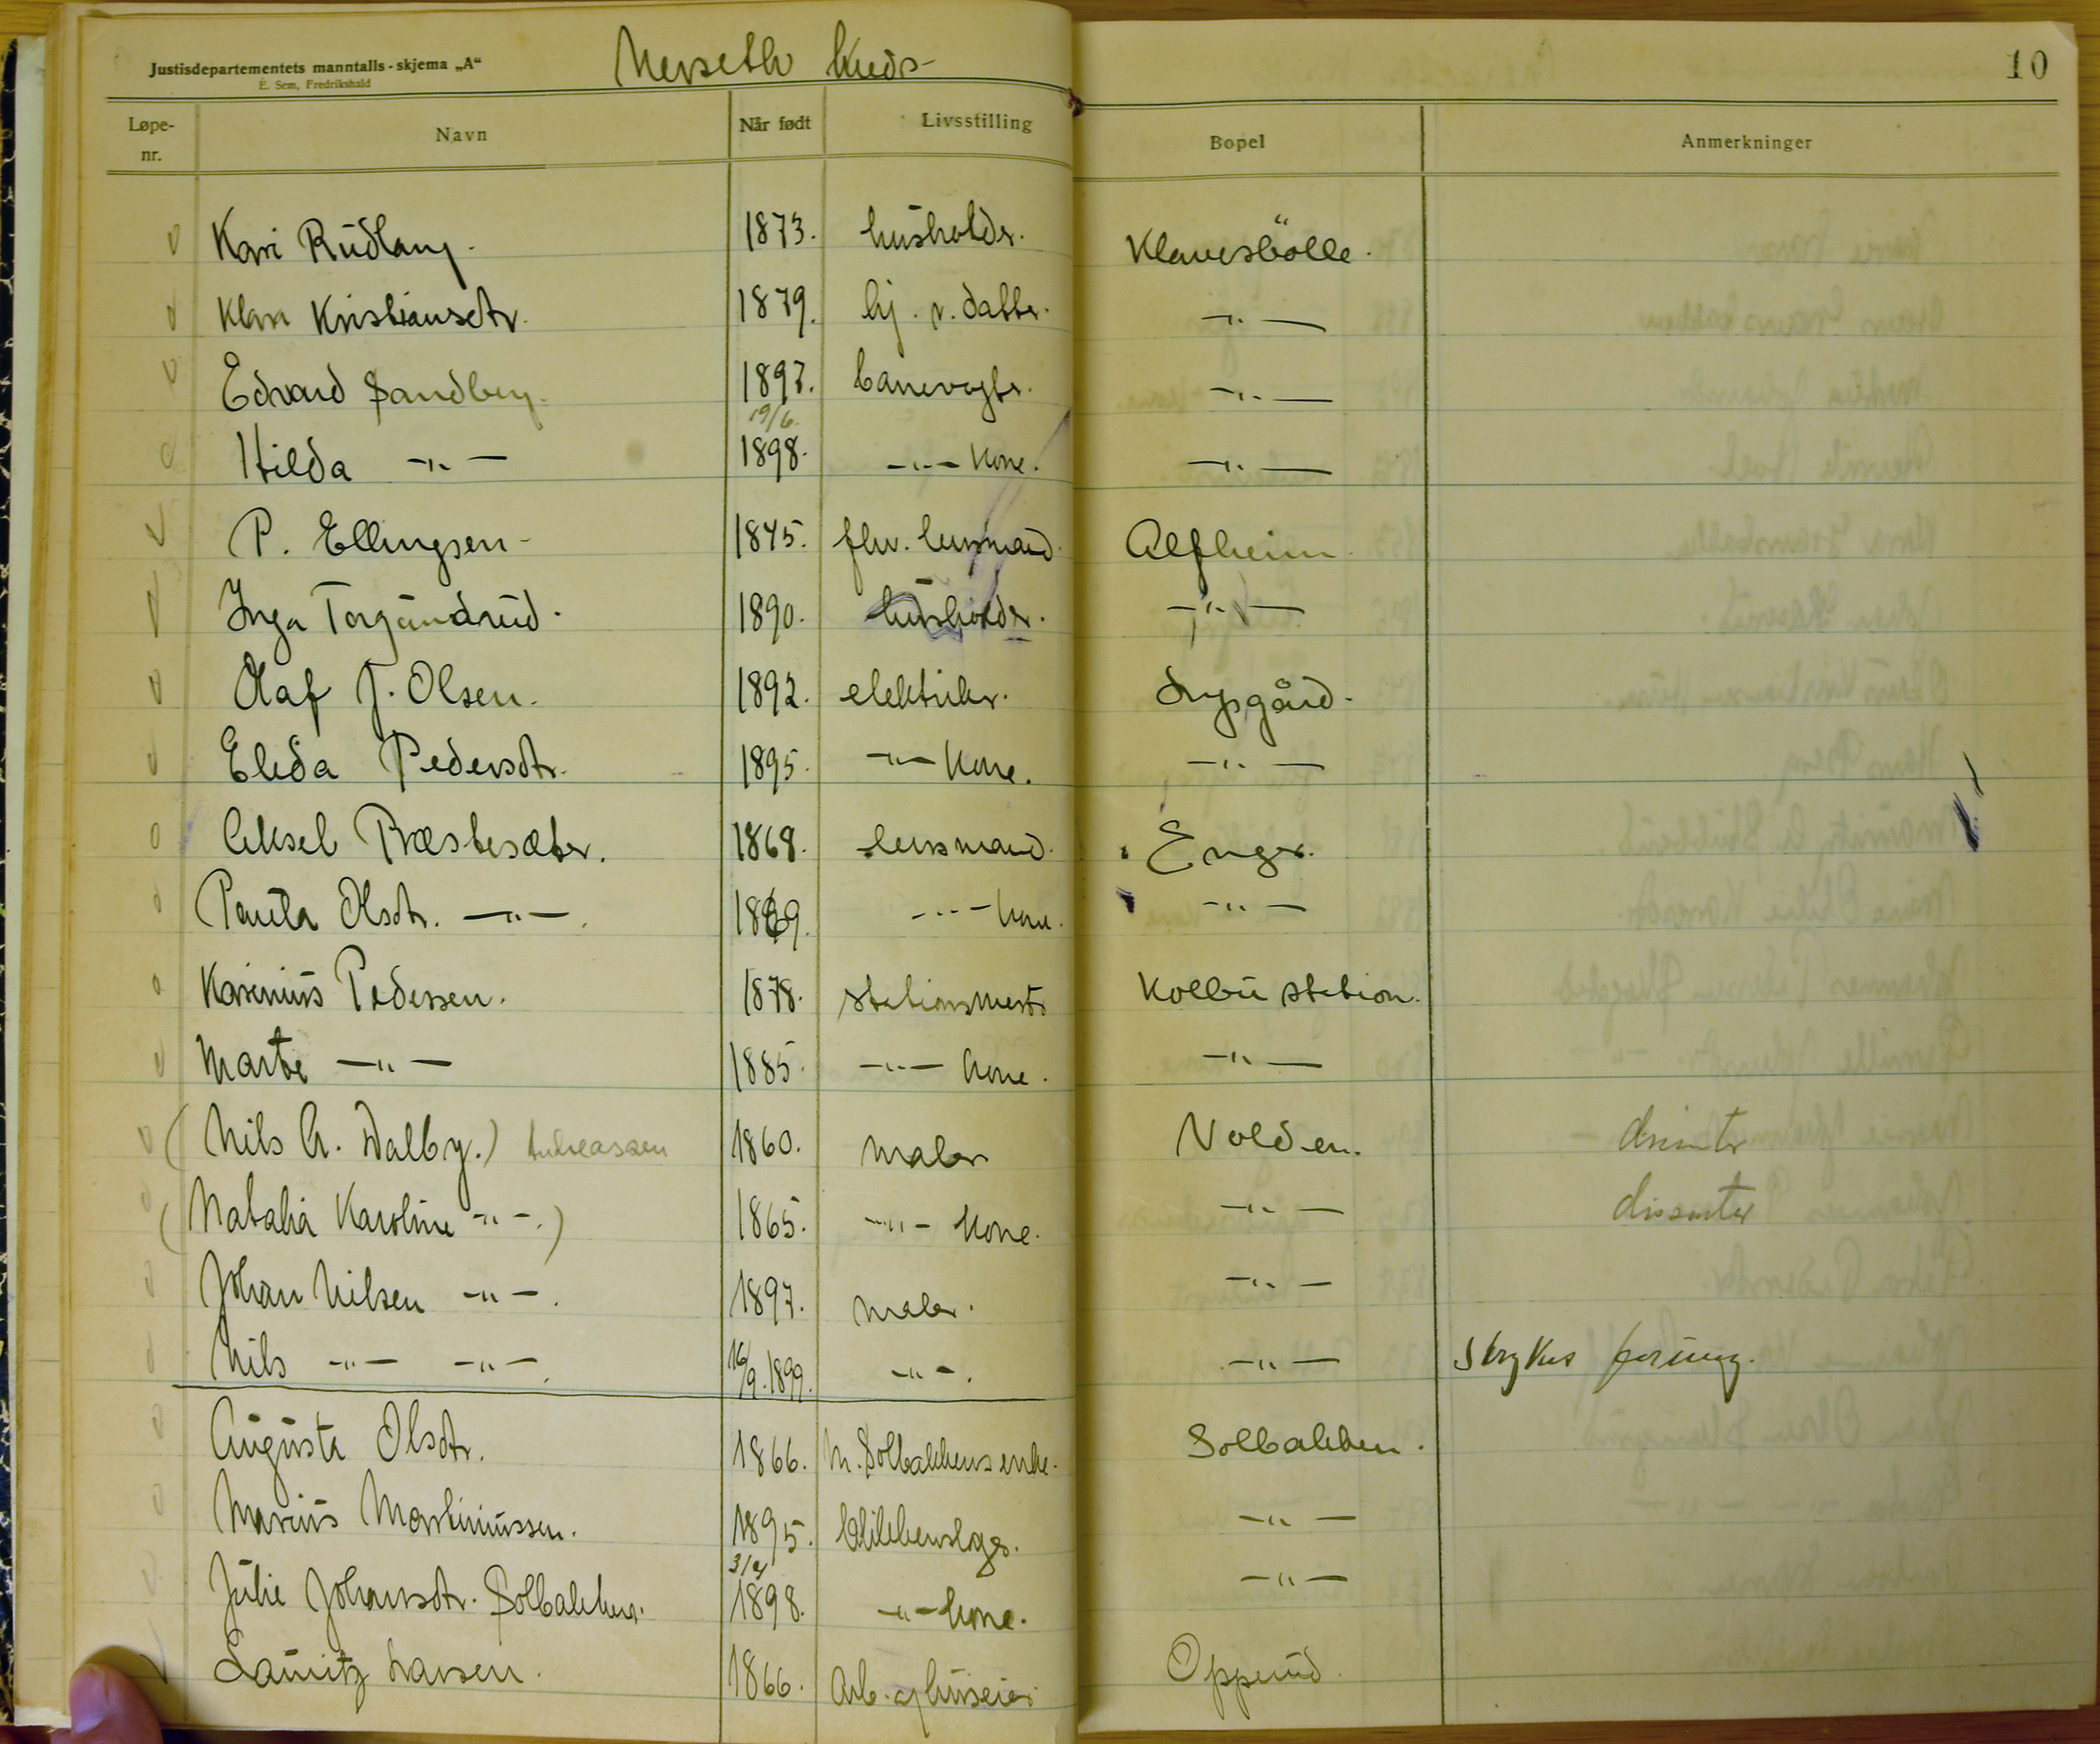 Justisdepartementets manntalls-skjema „A“
E. Sem, Fredrikshald
Nerseth kreds
10
Løpe-nr. Navn Når født Livsstilling Bopel Anmerkninger
Kari Rudlang. 1873. husholder. Klavesbölle.
Klara Kristiansdtr. 1879. hj. v. datter. -„-
Edvard Sandberg. 1897. banevogter. -„-
19/6.
Hilda -„- 1898. -„- kone. -„-
P. Ellingsen 1845. fhv. lensmand. Alfheim
Inga Torgundrud. 1890. husholder. -„-
Olaf J. Olsen. 1892. elektriker. Lysgård.
Elida Pedersdtr. 1895. -„- kone. -„-
Aksel Præstesæter. 1868. lensmand. Enger.
Paula Olsdtr. -„-. 1869. -„- kone. -„-
Karinius Pedersen. 1878. stationsmester Kolbu station.
Marte -„- 1885. -„- kone. -„-
(Nils A. Dalby.) Andreassen 1860. maler Volden. dissenter
(Natalia Karoline -„-.) 1865. -„- kone. -„- dissenter
Johan Nilsen -„-. 1897. maler. -„-
Nils -„- -„-. 16/9.1899. -„-. -„- strykes for ung.
Augusta Olsdtr. 1866. M. Solbakkens enke. Solbakken.
Marius Martiniussen. 1895. blikkenslager. -„-
3/4
Julie Johansdtr. Solbakken. 1898. -„- kone. -„-
Lauritz Larsen. 1866. Arb. og huseier Opperud.